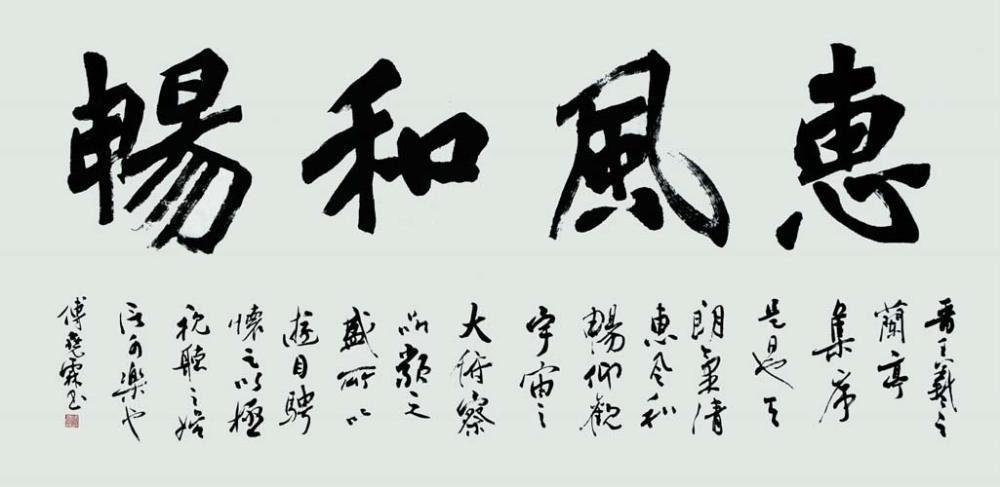 惠風和暢
晉王羲之
蘭亭
集序
是日也天
朗氣清
惠風和
暢仰觀
宇宙之
大俯察
品類之
盛所以
遊目騁
懷足以極
視聽之娛
信可樂也
傅堯霖书